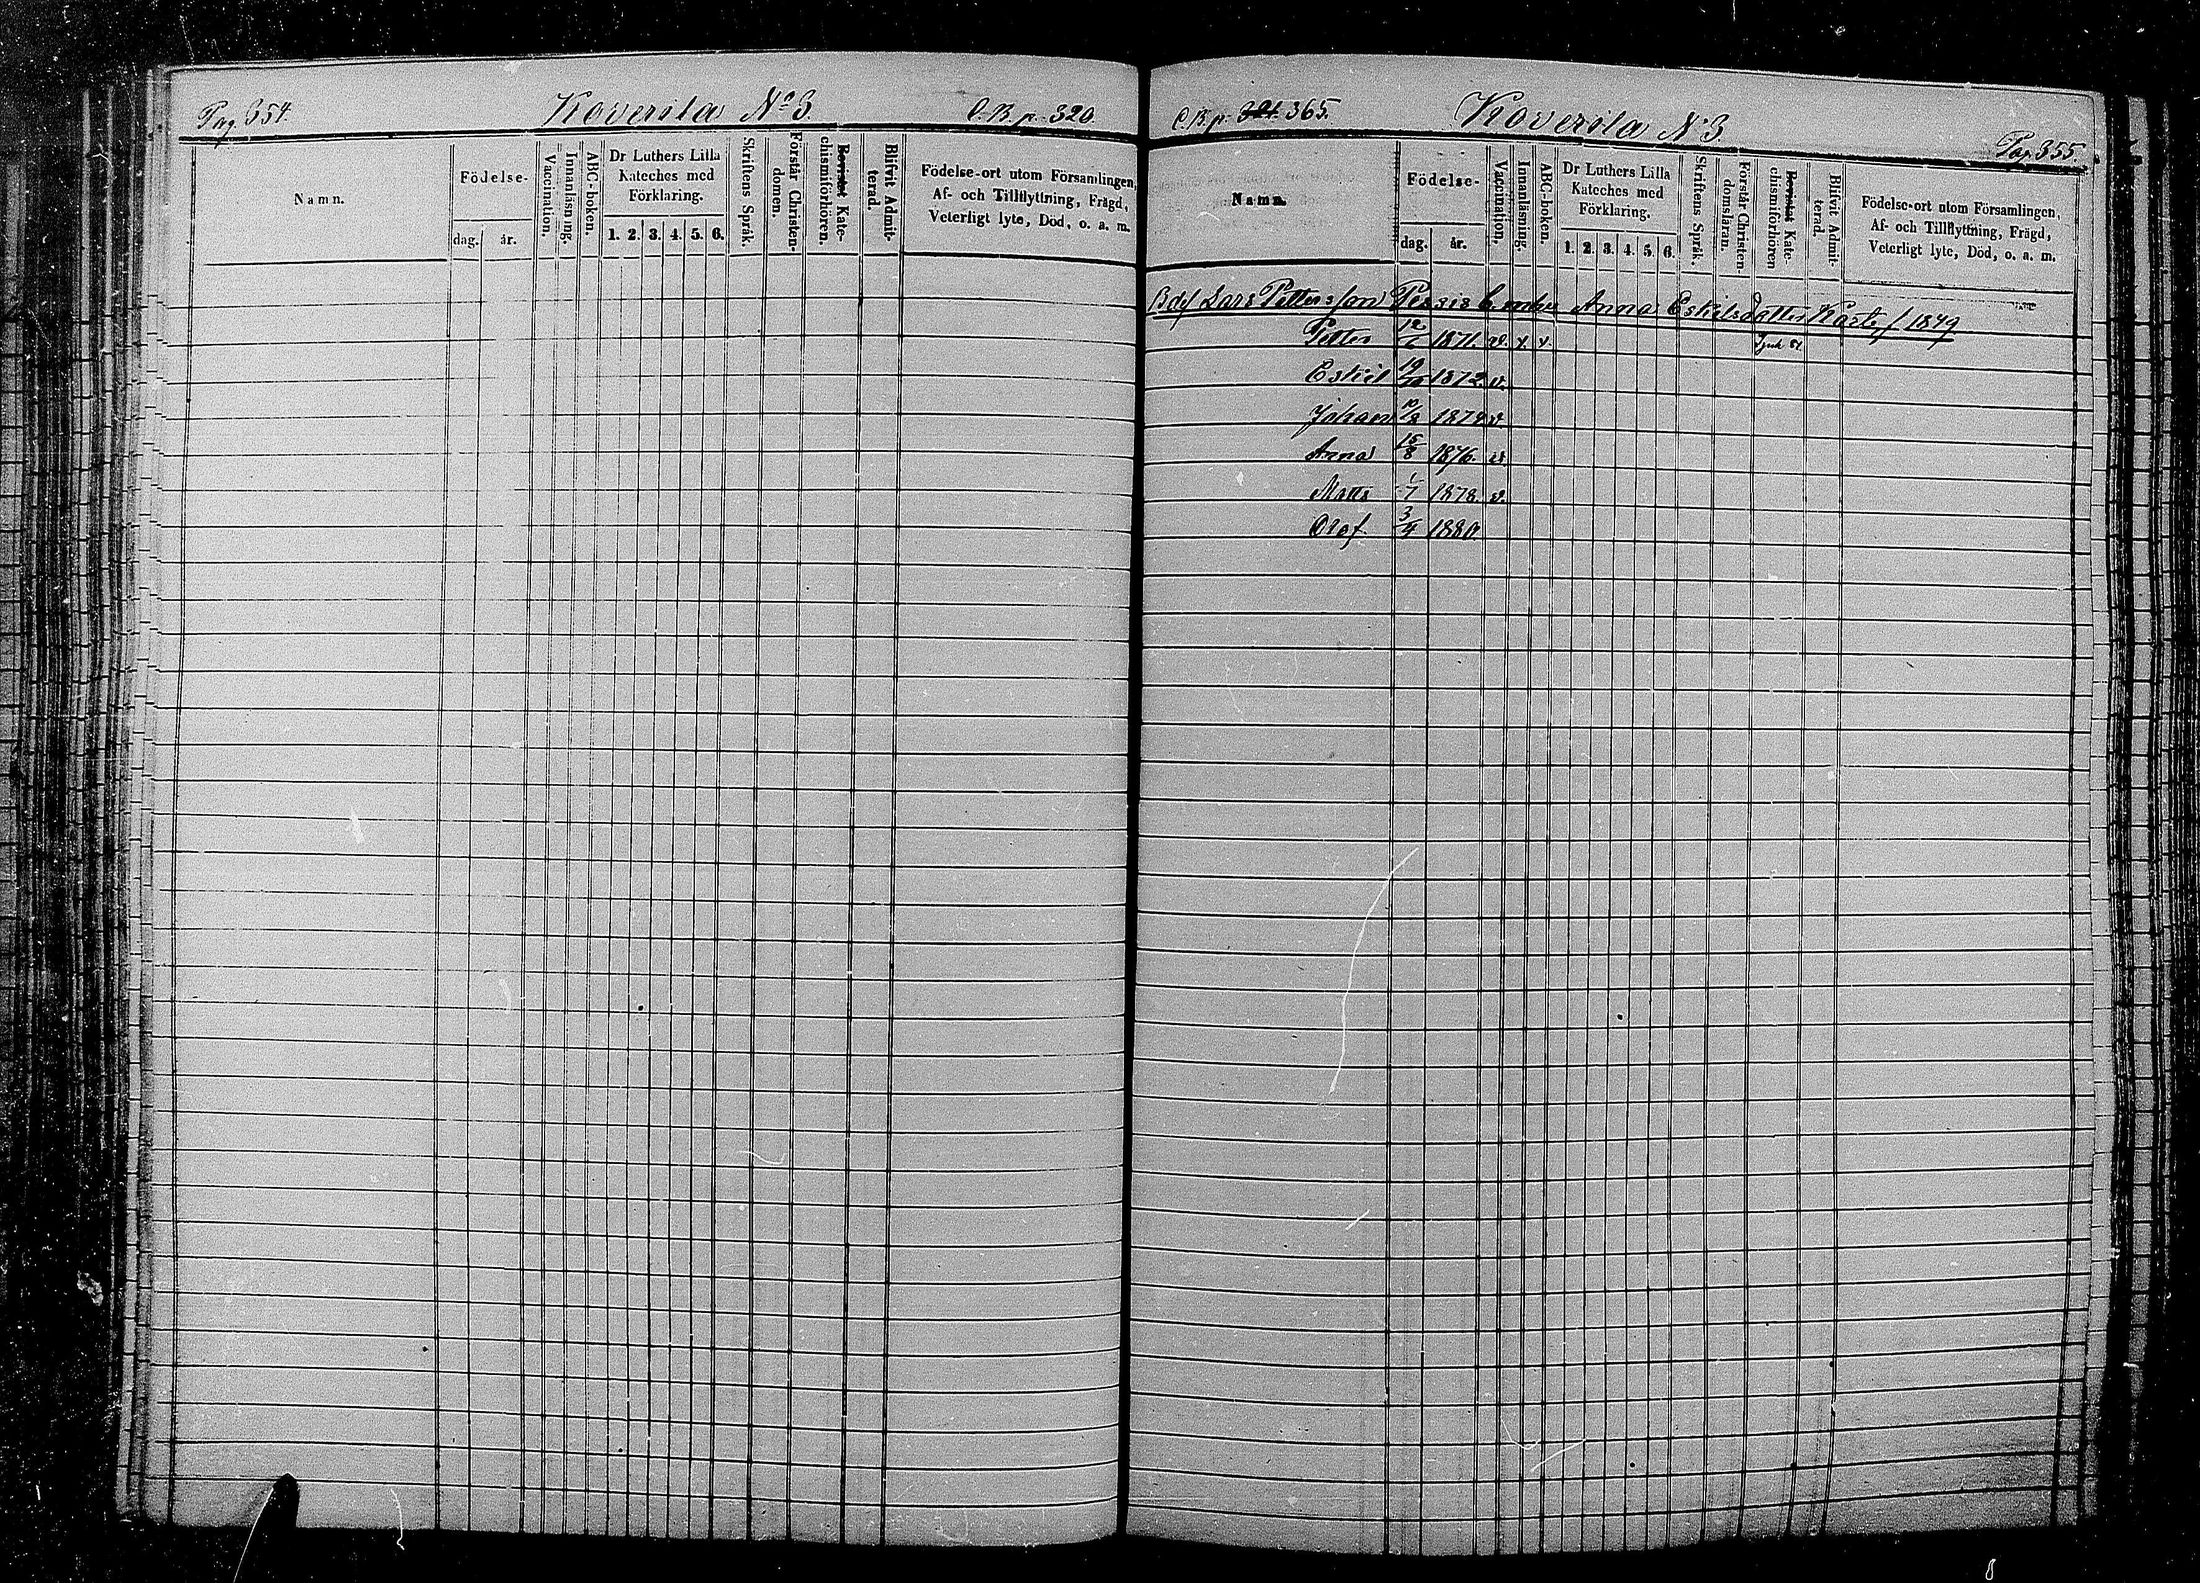 Pag 354.
Koverila No 3.
C. B. p. 320.
Namn.
Födelse-
dag.
år.
Vaccination.
Innanläsning.
ABC-boken.
Dr Luthers Lilla
Kateches med
Förklaring.
1. 2. 3. 4. 5. 6.
Skriftens Språk.
Förstår Christen-
domen.
Bevistat Kate-
chismiförhören.
Blifvit Admit-
terad.
Födelse-ort utom Församlingen,
Af- och Tillflyttning, Frägd,
Veterligt lyte, Död, o. a. m.
C. B. p. 321. 365.
Koverila No 3
Pag. 355.
Namn.
Födelse-
dag.
år.
Vaccination,
Innanläsning.
ABC-boken.
Dr Luthers Lilla
Kateches med
Förklaring.
1. 2. 3. 4. 5. 6.
Skriftens Språk.
Förstår Christen-
domsläran.
Bevistat Kate-
chismiförhören
Blifvit Admit-
terad.
Födelse-ort utom Församlingen,
Af- och Tillflyttning, Frägd,
Veterligt lyte, Död, o. a. m.
Lars Pettersson Anna Eskilsdatter 1849
Petter 1871. v. v v
Eskil 1872 v.
Johan v.
Anna 15/8 1876. v.
Matts 1/7 1878 v.
Olof 3/4 1880